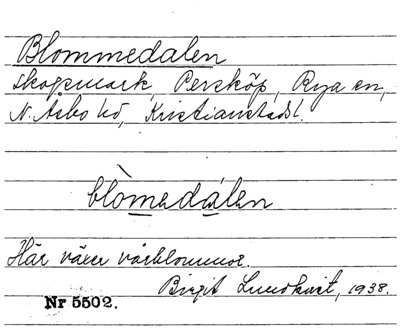 Blommedalen
skogsmark, Persköp, Rya sn,
N. Åsbo hd, Kristianstads l.
blòmedálen
Här växer vårblommor.
Birgit Lundkvist, 1938.
Nr 5502.